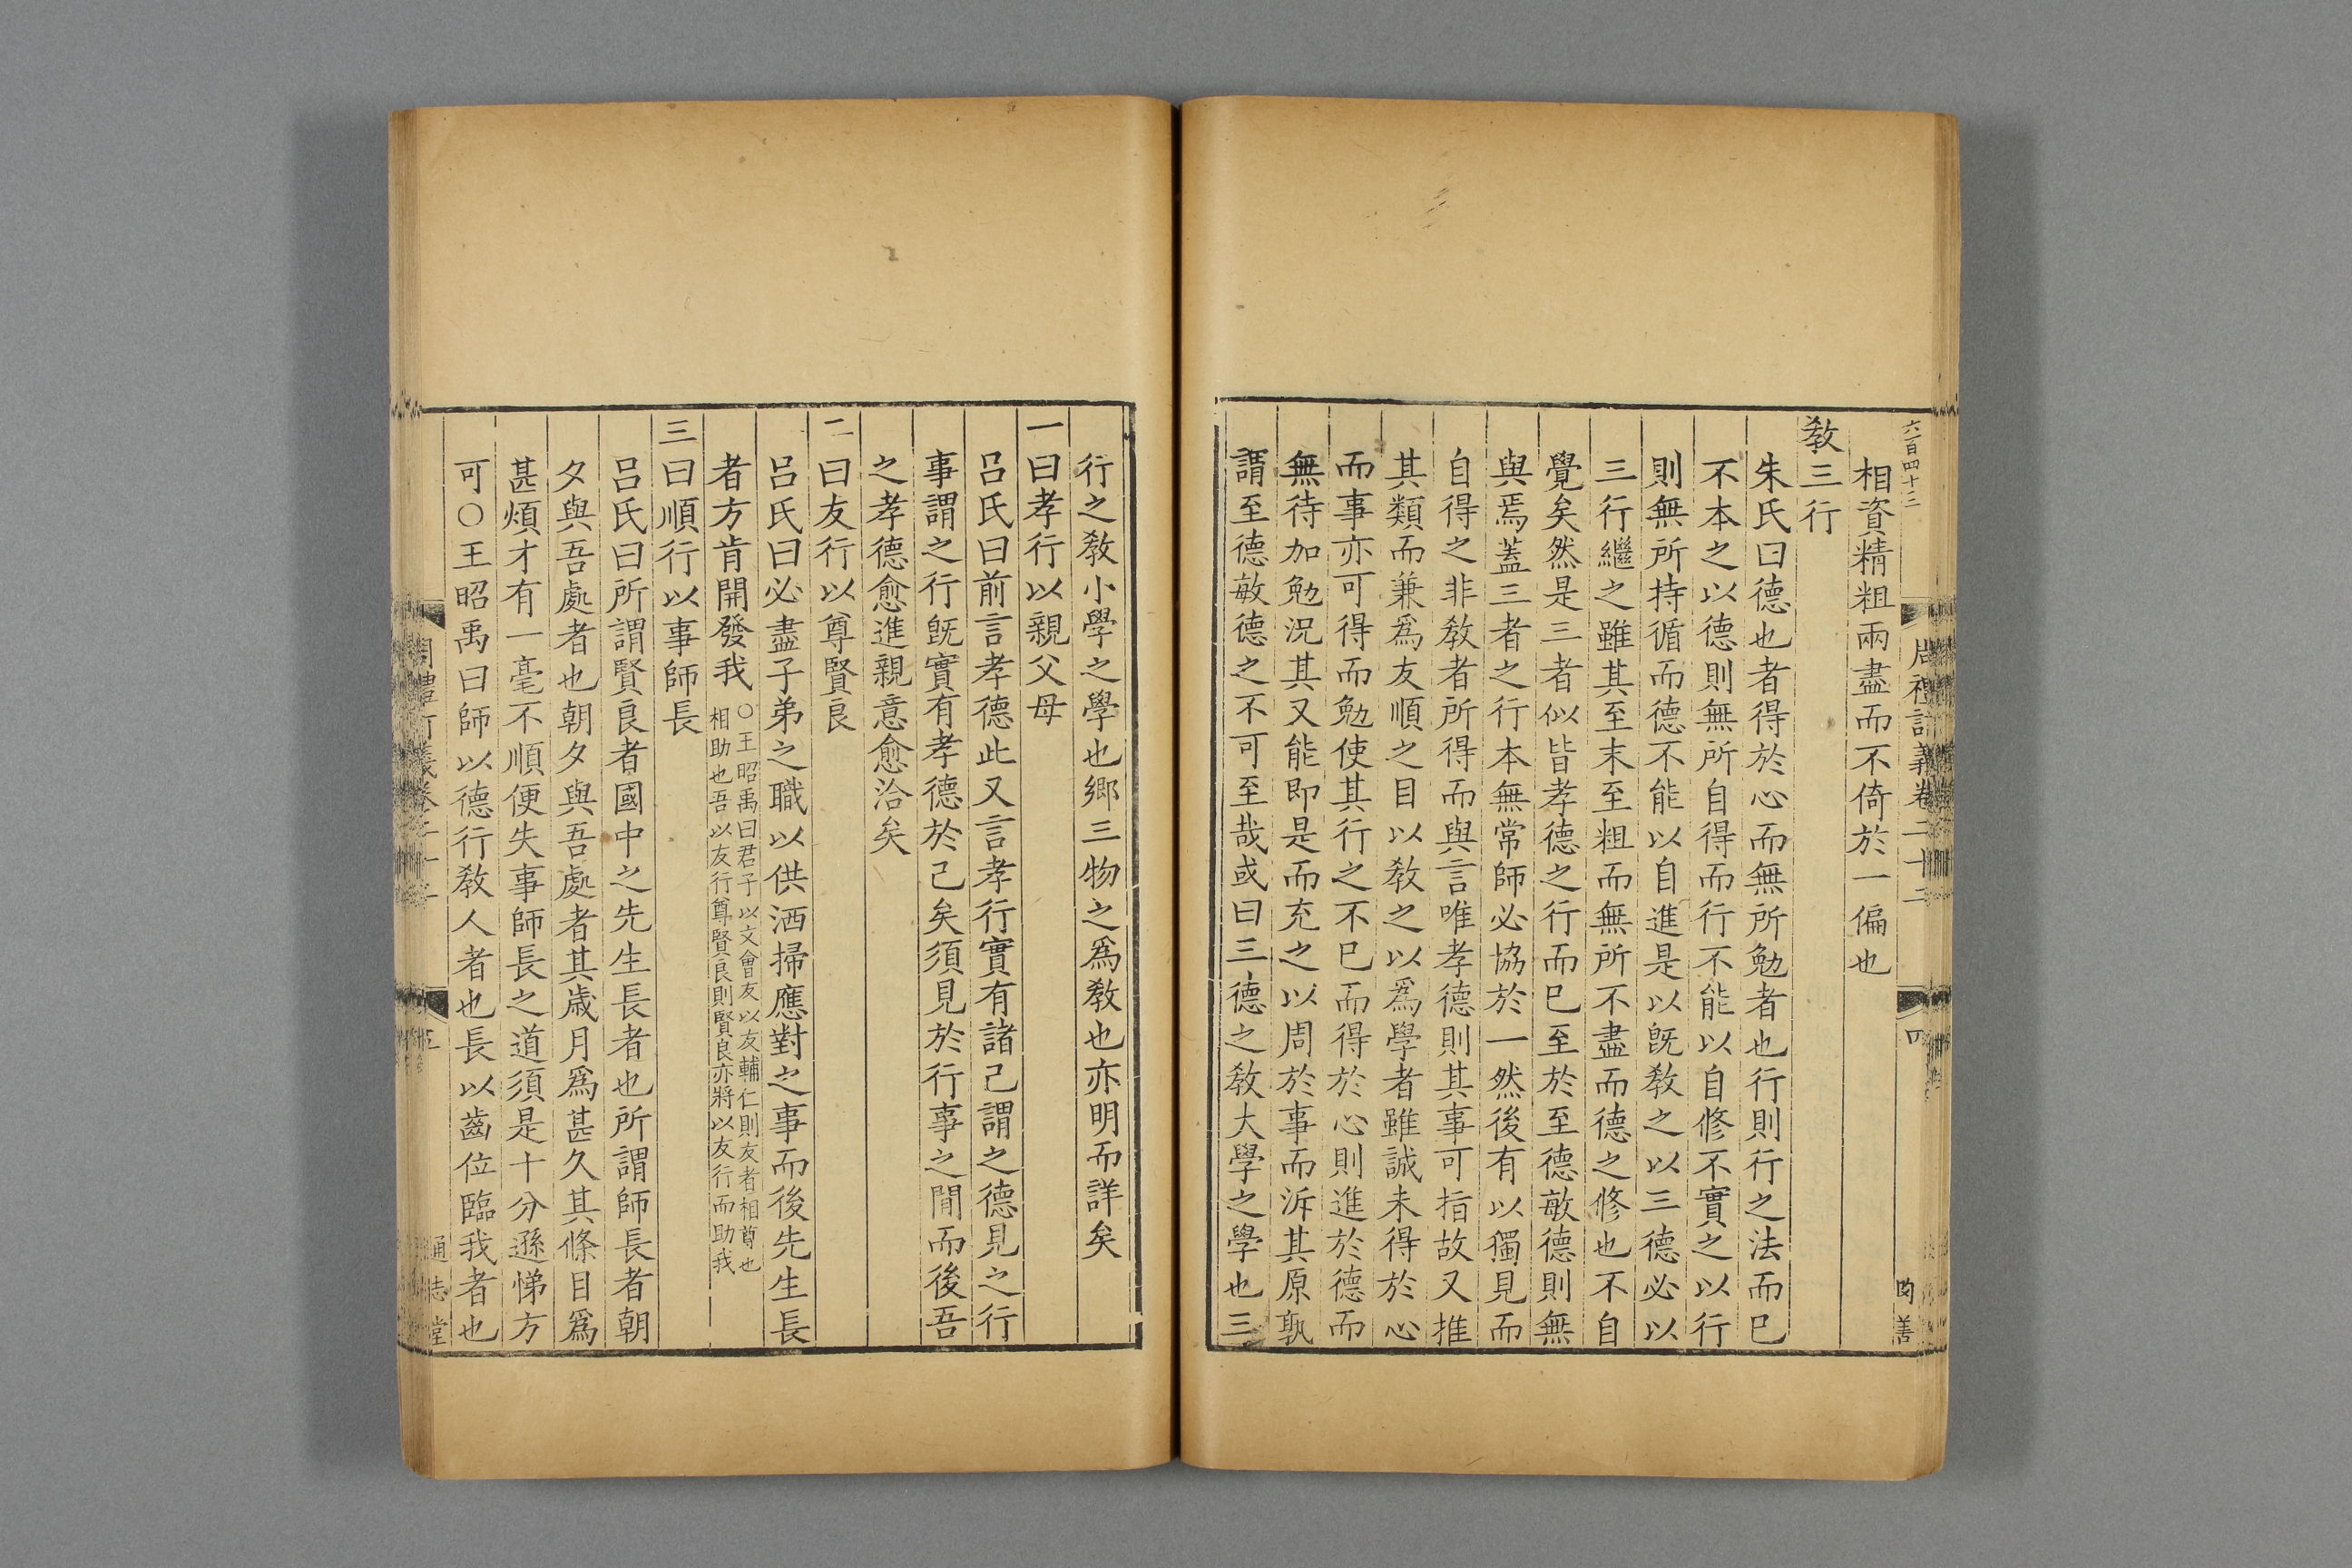 六百四十二
周禮訂義卷二十二
四
相資精粗兩盡而不倚於一偏也
教三行
朱氏曰德也者得於心而無所勉者也行則行之法而已
不本之以德則無所自得而行不能以自修不實之以行
則無所持循而德不能以自進是以旣教之以三德必以
三行繼之雖其至末至粗而無所不盡而德之修也不自
覺矣然是三者似皆孝德之行而已至於至德敏德則無
與焉蓋三者之行本無常師必協於一然後有以獨見而
自得之非教者所得而與言唯孝德則其事可指故又推
其類而兼爲友順之目以教之以爲學者雖誠未得於心
而事亦可得而勉使其行之不已而得於心則進於德而
無待加勉況其又能即是而充之以周於事而泝其原孰
謂至德敏德之不可至哉或曰三德之教大學之學也三
行之教小學之學也鄉三物之爲教也亦明而詳矣
一曰孝行以親父母
呂氏曰前言孝德此又言孝行實有諸己謂之德見之行
事謂之行旣實有孝德於己矣須見於行事之閒而後吾
之孝德愈進親意愈洽矣
二曰友行以尊賢良
呂氏曰必盡子弟之職以供洒掃應對之事而後先生長
者方肯開發我
○王昭禹曰君子以文會友以友輔仁則友者相尊也
相助也吾以友行尊賢良則賢良亦將以友行而助我
三曰順行以事師長
呂氏曰所謂賢良者國中之先生長者也所謂師長者朝
夕與吾處者也朝夕與吾處者其歲月爲甚久其條目爲
甚煩才有一毫不順便失事師長之道須是十分遜悌方
可○王昭禹曰師以德行教人者也長以齒位臨我者也
五
通志堂